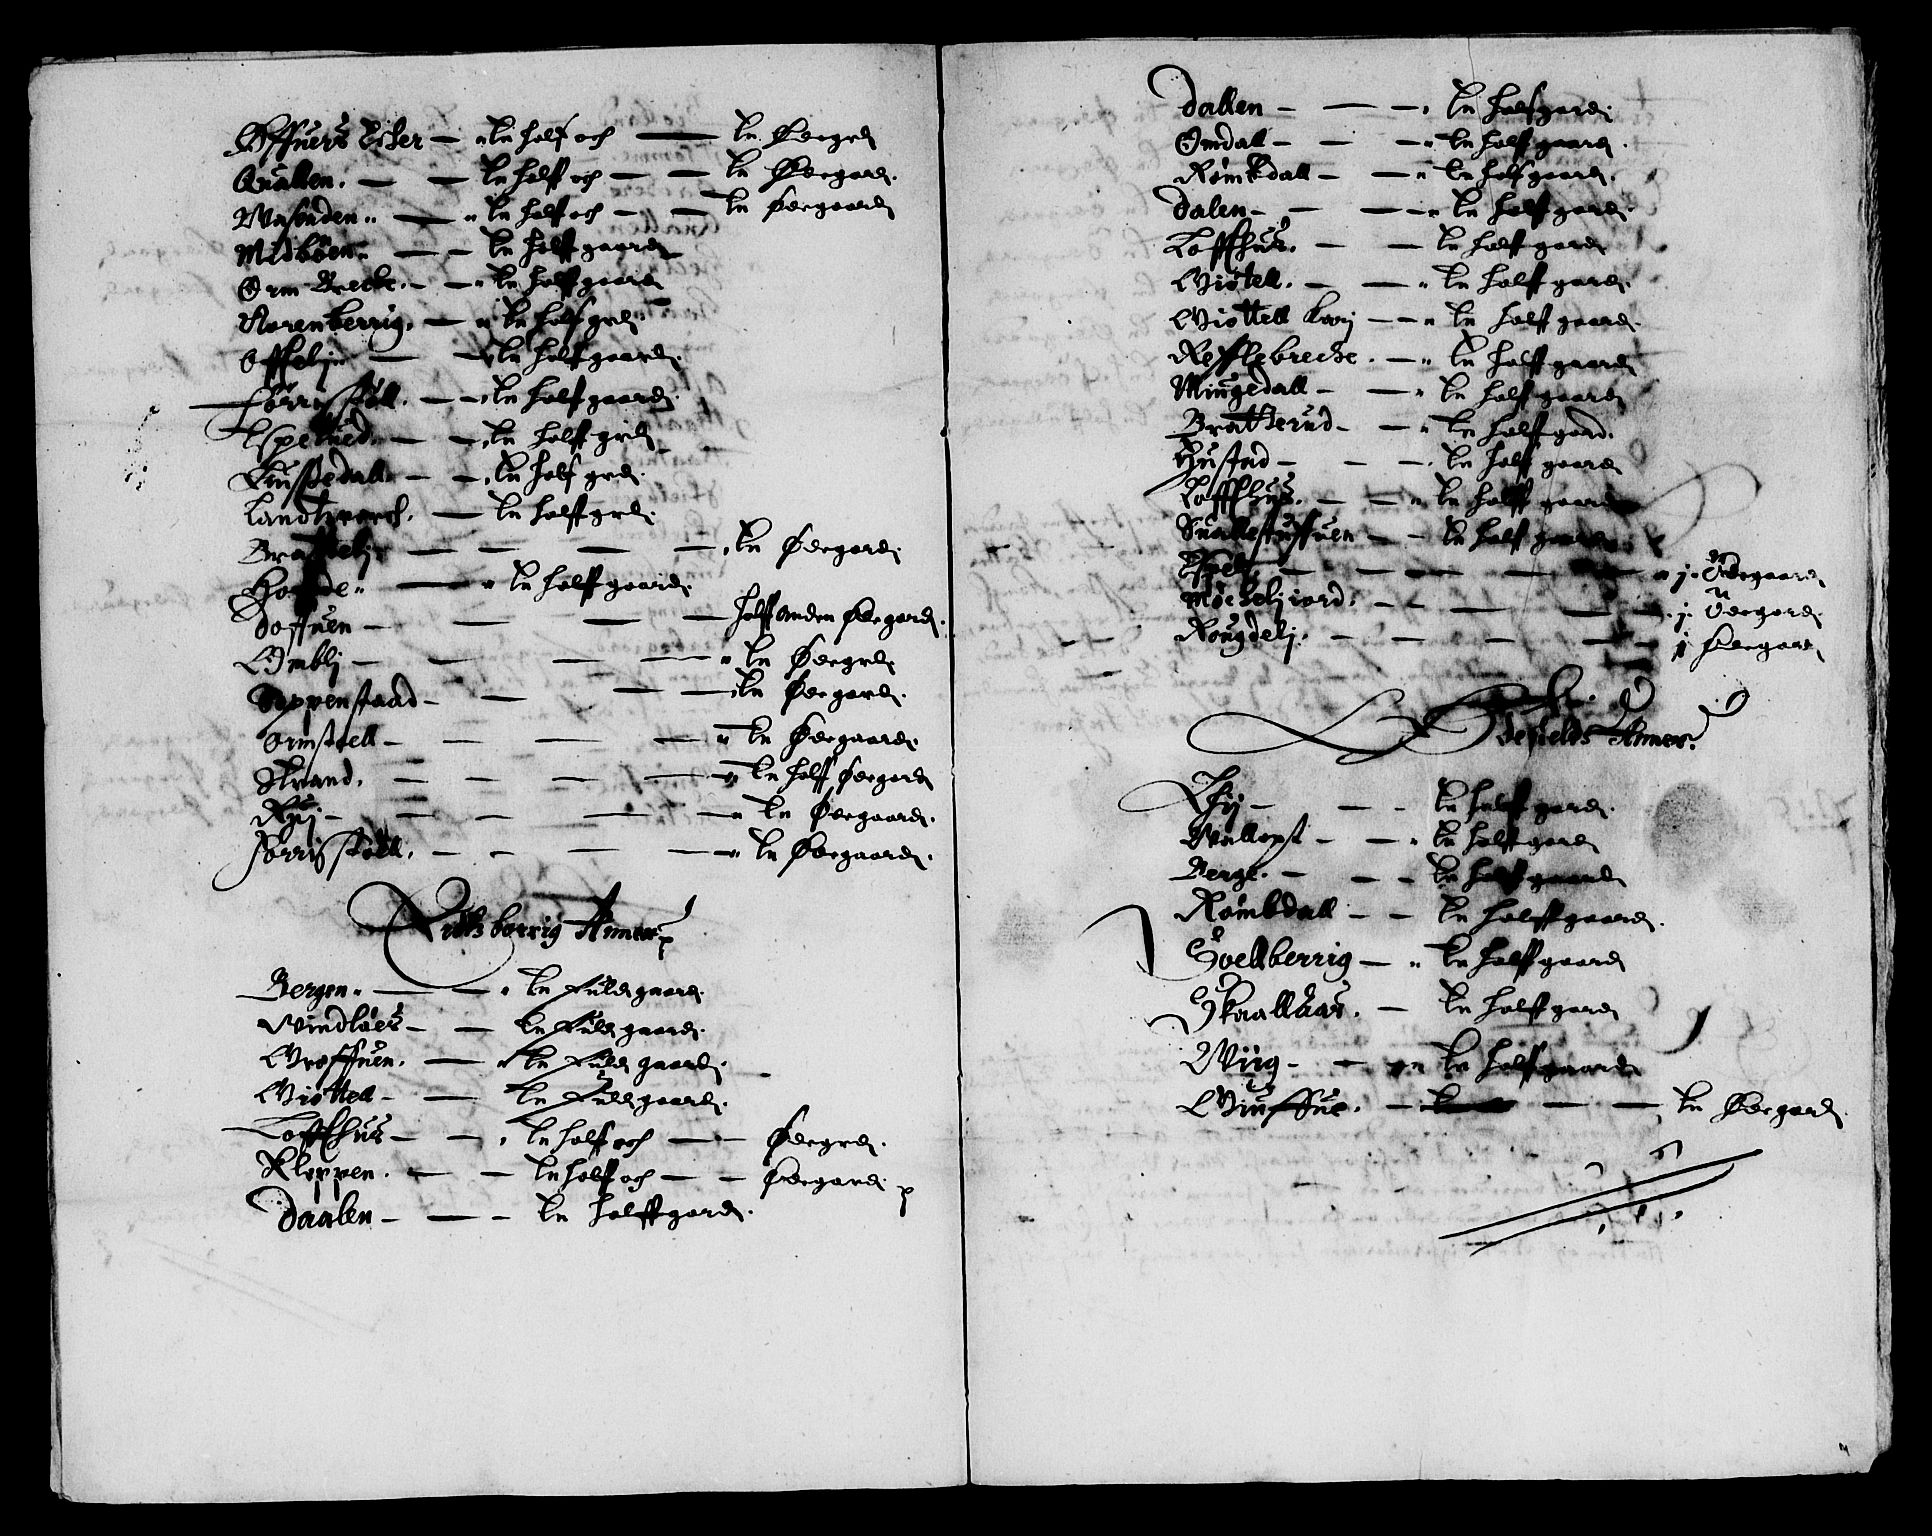 Øffuers Eker — En half och — En Ødegrd
Quallen. — En halff och — En Ødegard.
Wasenden — En halff och — En Ødegaard
Midbøen — En halff gaard
Orm Brecke. — En halff gaard
Norenberrig. — En halff grd
Offtelj — En halff gaard.
Førrisstøll. — En halff gaard.
Espelued — En halff grd
Liussedall — En half grd.
Landtwerch. — En halff grd.
Brattelj — En Ødegard.
Hofde — En halff gaard.
Doffuen — halff Anden Ødegard.
Embli — En Ødegrd
Seppenstaad — En Ødegard.
Ormstell — En Ødegaard.
Strand. — En halff Ødegard
Ryi — En Ødegaard.
Førrisstøll. — En Ødegaard.
berrig Annex
Bergen — En Fuld gaard.
Windløes — En Fuld gaard.
Groffuen. — En Fuld gaard.
Giøttell — En Fuld gaard.
Loffthus — En halff och — Ødegrd.
Kleppen. — En halff och — Ødegard
Daalen — En halff gard.
Dallen — En halfgard.
Omdall — En halff gaard.
Rømkdall — En halff gaard.
Dalen — En halff gard.
Loffthus. — En halff gard
Giøtell. — En halff gard.
Giøttell — En halff gaard.
Refflebrecke. — En halff gaard
Mingedall — En halff gaard
Bratterud — En halff gard.
Hustad — En halff gaard
Loffthus. — En halff gaard
Suallestuffuen — En halff gaard
Espelj — j Ødegaard
Møckeljiord. — j Ødegard.
Rougdelj. — j Ødegard
Annex.
Lij — En halff gard.
Wallopt — En halff gard
Berge. — En halff gaard
Rømkdall — En halff gaard.
Soelberrig — En halff gaard
Skaalkaas. — En halff gard
Wiig — En halff gaard
Giuffue. — En Ødegard.